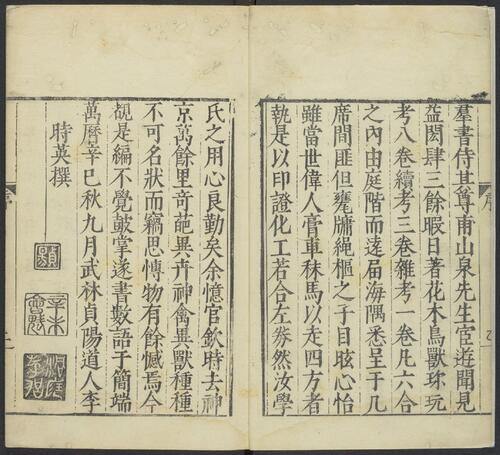 羣書侍其尊甫山泉先生宦遊聞見
益閎肆三餘暇日著花木鳥獸珎玩
考八卷續考三卷雜考一卷凡六合
之內由庭階而達届海隅悉呈于几
席間匪但甕牖繩樞之子目眩心怡
雖當世偉人膏車秣馬以走四方者
執是以印證化工若合左券然汝學
氏之用心良勤矣余憶官欽時去神
京萬餘里奇葩異卉神禽異獸種種
不可名狀而竊思慱物有餘憾焉今
覩是編不覺鼓掌遂書數語于簡端
萬曆辛巳秋九月武林貞陽道人李
時英撰
序